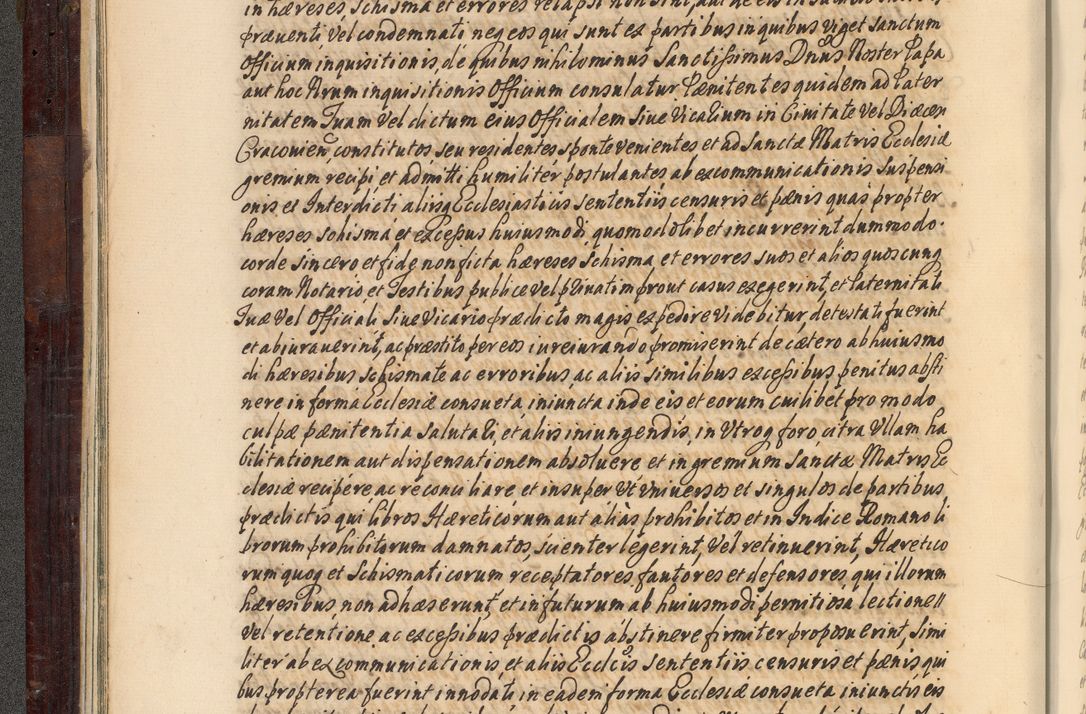 in hæreses, schisma et errores relapsi non sint, aut de eis in
præventi vel condemnati neq eos qui sunt ex partibus in quibus viget sanctum
Officium inquisitionis, de quibus nihilominus Sanctissimus Dnus Noster Papa
aut hoc Nrum inquisitionis Officium consulatur Pænitentes quidem ad Pater
nitatem Tuam vel dictum eius Officialem sive Vicarium in Civitate vel Diæcesi
Cracovien, constitutos seu residentes sponte venientes et ad Sanctæ Matris Ecclesiæ
gremium recipi et admitti humiliter postulantes ab excommunicationis suspensi
onis et Interdicti aliisq Ecclesiasticis sententiis censuris et pænis quas propter
hæreses schisma et excessus huiusmodi quomodolibet incurrerint dummodo
corde sincero et fide non ficta hæreses schisma et errores suos et alios quoscunq
coram Notario et Testibus publice vel privatim prout casus exegerint, et Paternitati
Tuæ vel Officiali sive Vicario prædicto magis expedire videbitur, detestati fuerint
et abiuraverint, ac præstito per eos iureiurando promiserint de cætero ab huiusmo
di hæresibus schismate ac erroribus, ac aliis similibus excessibus penitus absti
nere in forma Ecclesiæ consueta iniuncta inde eis et eorum cuilibet pro modo
culpæ pænitentia salutari, et aliis iniungendis, in utroq foro citra ullam ha
bilitationem aut dispensationem absolvere et in gremium Sanctæ Matris Ec
clesiæ recipere ac reconciliare et insuper ut universos et singulos de partibus
prædictis qui libros Hæreticorum aut alias prohibitos et in Indice Romano li
brorum prohibitorum damnatos, scienter legerint, vel retinuerint, Hæretico
rum quoq et Schismaticorum receptatores fautores et defensores, qui illorum
hæresibus non adhæserunt, et in futurum ab huiusmodi pernitiosa lectione
vel retentione ac excessibus prædictis abstinere firmiter proposuerint, simi
liter ab excommunicationis et aliis Ecclcis sententiis censuris et pænis qui
bus propterea fuerint innodati in eadem forma Ecclesiæ consueta iniunctis eis